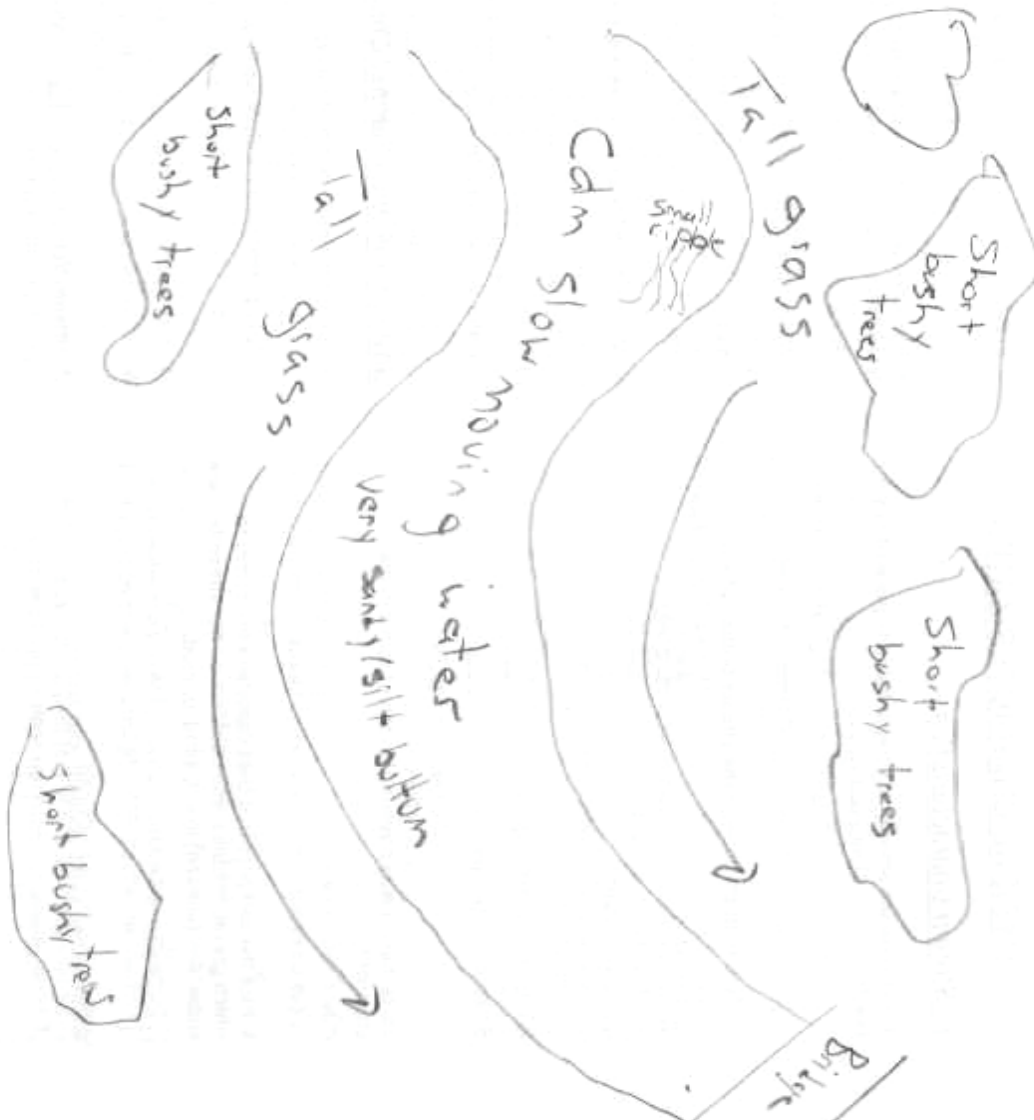 Short
bushy
trees
Short
bushy trees
Tall grass
small
ripple
Calm slow moving water
very sandy/silt bottum
Bridge
Tall grass
Short
bushy trees
Short bushy trees